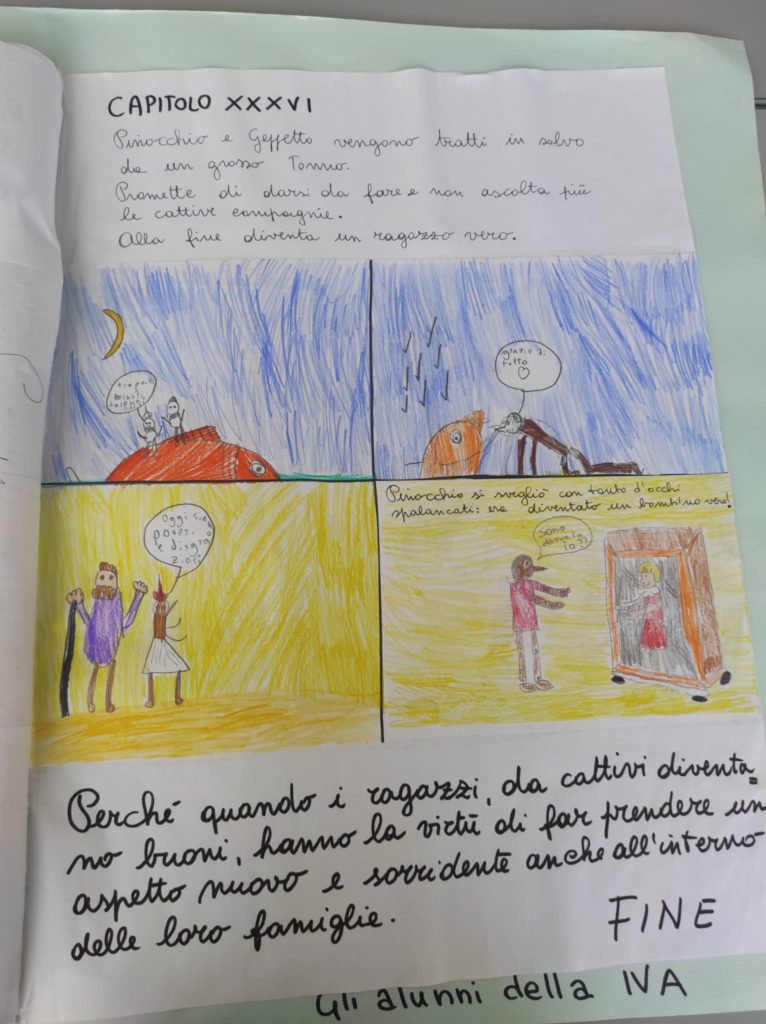 CAPITOLO XXXVI
Pinocchio e Geppetto vengono tratti in salvo
da un grosso Tonno.
Promette di darsi da fare e non ascolta più
le cattive compagnie.
Alla fine diventa un ragazzo vero.
grazie di
tutto
Oggi siam
poveri
e disgra
ziati
Pinocchio si svegliò con tanto d'occhi
spalancati: era diventato un bambino vero!
Sono
davvero
io?!
Perché quando i ragazzi, da cattivi diventa=
no buoni, hanno la virtù di far prendere un
aspetto nuovo e sorridente anche all'interno
delle loro famiglie.
FINE
Gli alunni della IVA